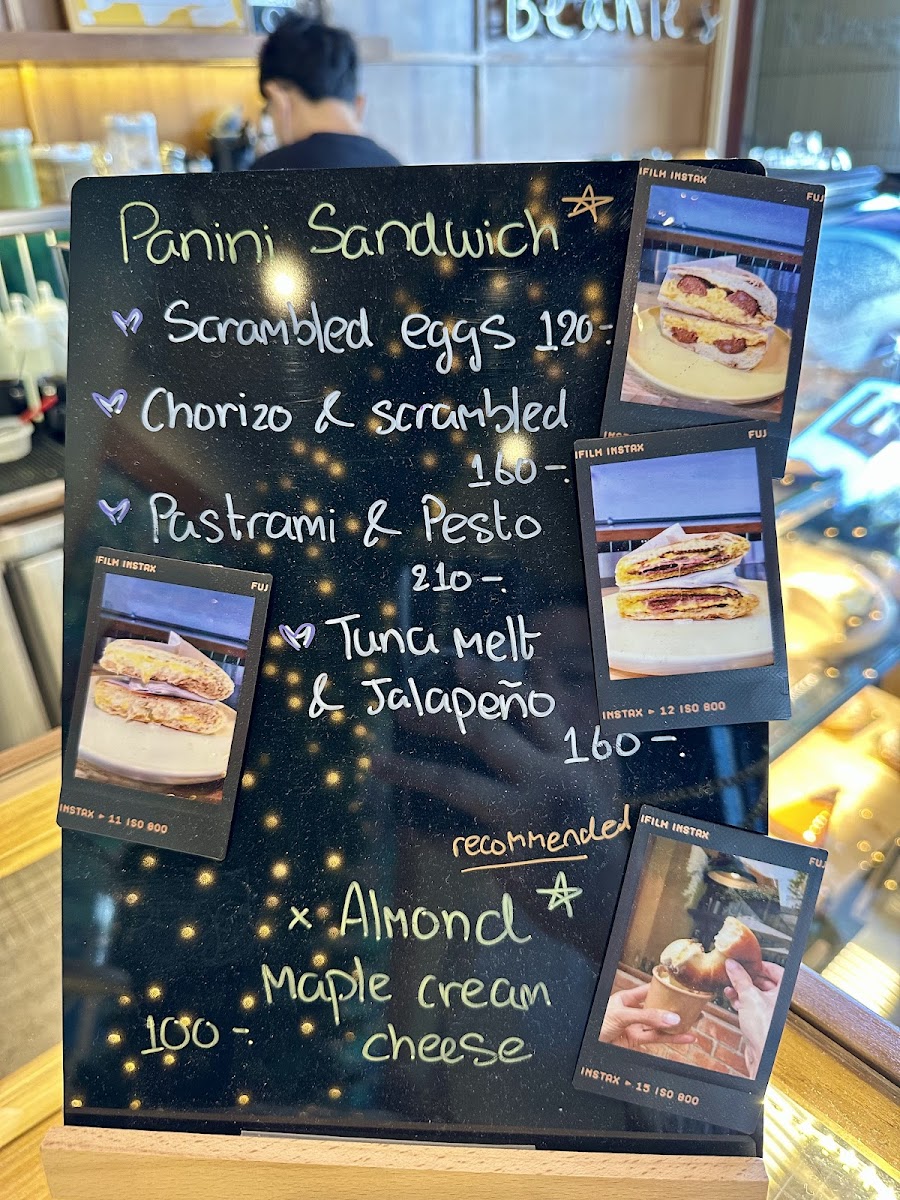 Beanie's
Panini Sandwich
Scrambled eggs 120-
Chorizo & scrambled
160-
Pastrami & Pesto
210-
Tuna Melt
& Jalapeño
160-
recommended
× Almond
Maple cream
100- cheese
IFILM INSTAX FUJ
IFILM INSTAX FUJ
INSTAX ▸ 12 ISO 800
IFILM INSTAX FUJ
INSTAX ▸ 11 ISO 800
IFILM INSTAX FUJ
INSTAX ▸ 15 ISO 800